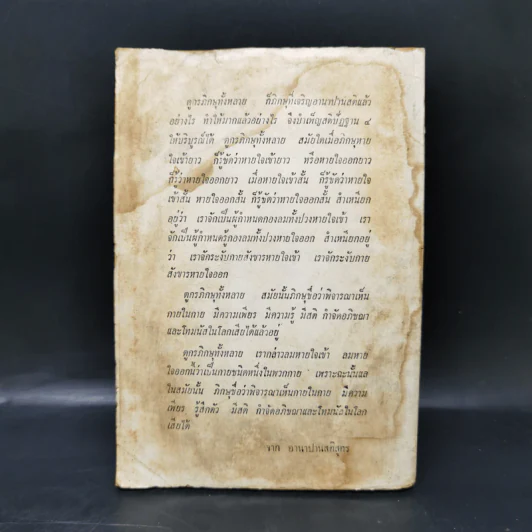 ดูกรภิกษุทั้งหลาย ก็ภิกษุที่เจริญอานาปานสติแล้ว
อย่างไร ทำให้มากแล้วอย่างไร จึงบำเพ็ญสติปัฏฐาน ๔
ให้บริบูรณ์ได้ ดูกรภิกษุทั้งหลาย สมัยใดเมื่อภิกษุหาย
ใจเข้ายาว ก็รู้ชัดว่าหายใจเข้ายาว หรือหายใจออกยาว
ก็รู้ว่าหายใจออกยาว เมื่อหายใจเข้าสั้น ก็รู้ชัดว่าหายใจ
เข้าสั้น หายใจออกสั้น ก็รู้ชัดว่าหายใจออกสั้น สำเหนียก
อยู่ว่า เราจักเป็นผู้กำหนดกองลมทั้งปวงหายใจเข้า เรา
จักเป็นผู้กำหนดรู้กองลมทั้งปวงหายใจออก สำเหนียกอยู่
ว่า เราจักระงับกายสังขารหายใจเข้า เราจักระงับกาย
สังขารหายใจออก
ดูกรภิกษุทั้งหลาย สมัยนั้นภิกษุชื่อว่าพิจารณาเห็น
กายในกาย มีความเพียร มีความรู้ มีสติ กำจัดอภิชฌา
และโทมนัสในโลกเสียได้แล้วอยู่
ดูกรภิกษุทั้งหลาย เรากล่าวลมหายใจเข้า ลมหาย
ใจออกนี้ว่าเป็นกายชนิดหนึ่งในพวกกาย เพราะฉะนั้นแล
ในสมัยนั้น ภิกษุชื่อว่าพิจารณาเห็นกายในกาย มีความ
เพียร รู้สึกตัว มีสติ กำจัดอภิชฌาและโทมนัสในโลก
เสียได้
จาก อานาปานสติสูตร